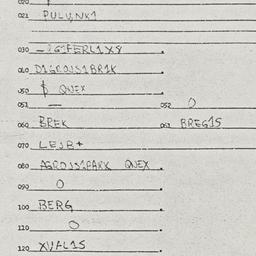 020
021 PULUNK1
030
040 D1GROJS1BR1K
050 $ QNEX
051 — 052 O
060 BREK 061 BREG1S
070 LEJB+
080 AGROJS1PARK QNEX
090 O
100 BERG
110 O
120 XVAL1S